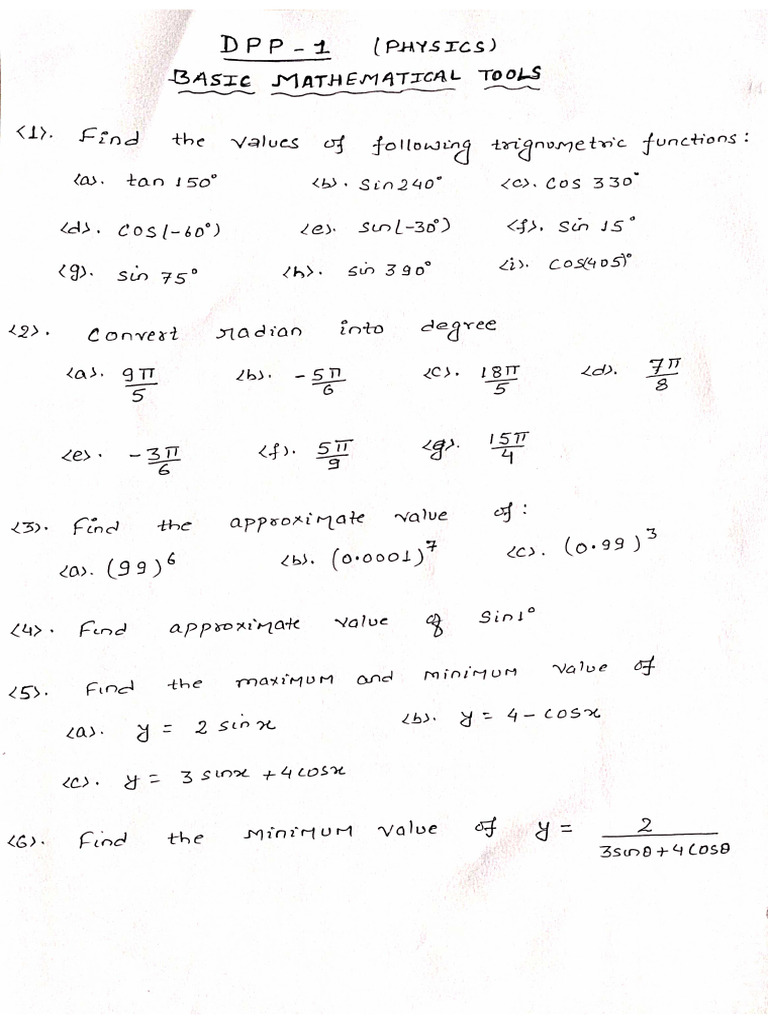 DPP-1 (PHYSICS)
BASIC MATHEMATICAL TOOLS
<1>. Find the values of following trignometric functions:
<a>. tan 150° <b>. sin 240° <c>. cos 330°
<d>. cos(-60°) <e>. sin(-30°) <f>. sin 15°
<g>. sin 75° <h>. sin 390° <i>. cos(405)°
<2>. Convert radian into degree
<a>. 9π/5 <b>. -5π/6 <c>. 18π/5 <d>. 7π/8
<e>. -3π/6 <f>. 5π/9 <g>. 15π/4
<3>. Find the approximate value of:
<a>. (99)⁶ <b>. (0.0001)⁷ <c>. (0.99)³
<4>. Find approximate value of sin1°
<5>. Find the maximum and minimum value of
<a>. y = 2 sinx <b>. y = 4 - cosx
<c>. y = 3 sinx + 4cosx
<6>. Find the minimum value of y = 2/(3sinθ + 4cosθ)